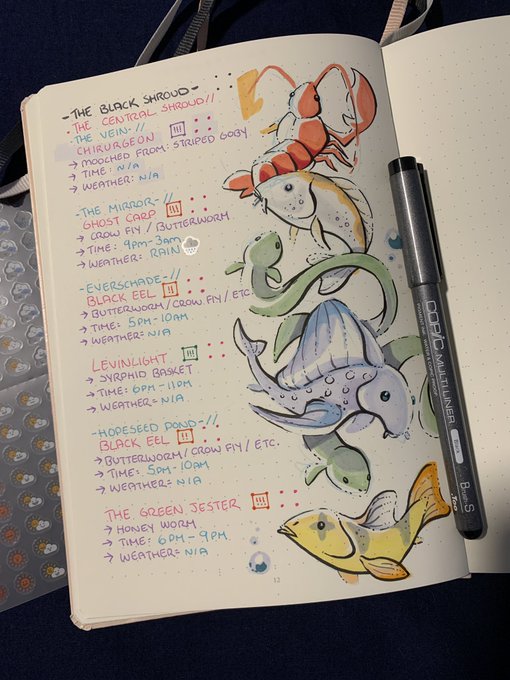 - THE BLACK SHROUD -
· THE CENTRAL SHROUD//
- THE VEIN - //
CHIRURGEON !!!
→ MOOCHED FROM: STRIPED GOBY
→ TIME: N/A
→ WEATHER: N/A
- THE MIRROR - //
GHOST CARP !!!
→ CROW FLY / BUTTERWORM
→ TIME: 9PM-3AM
→ WEATHER: RAIN
- EVERSCHADE - //
BLACK EEL !!
→ BUTTERWORM / CROW FLY / ETC
→ TIME: 5PM-10AM
→ WEATHER: N/A
LEVINLIGHT !!!
→ SYRPHID BASKET
→ TIME: 6PM-11PM
→ WEATHER: N/A
- HOPESEED POND - //
BLACK EEL !!
→ BUTTERWORM / CROW FLY / ETC.
→ TIME: 5PM-10AM
→ WEATHER: N/A
THE GREEN JESTER !!!
→ HONEY WORM
→ TIME: 6PM-9PM
→ WEATHER: N/A
12
COPIC MULTILINER
Black
Brush-S
.Too